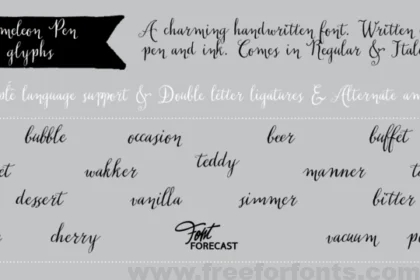 meleon Pen
glyphs
A charming handwritten font. Written
pen and ink. Comes in Regular & Ital
le language support & Double letter ligatures & Alternate an
bubble occasion beer buffet
et wakker teddy manner t
dessert vanilla simmer bitter
cherry Font FORECAST vacuum p
www.freeforfonts.com